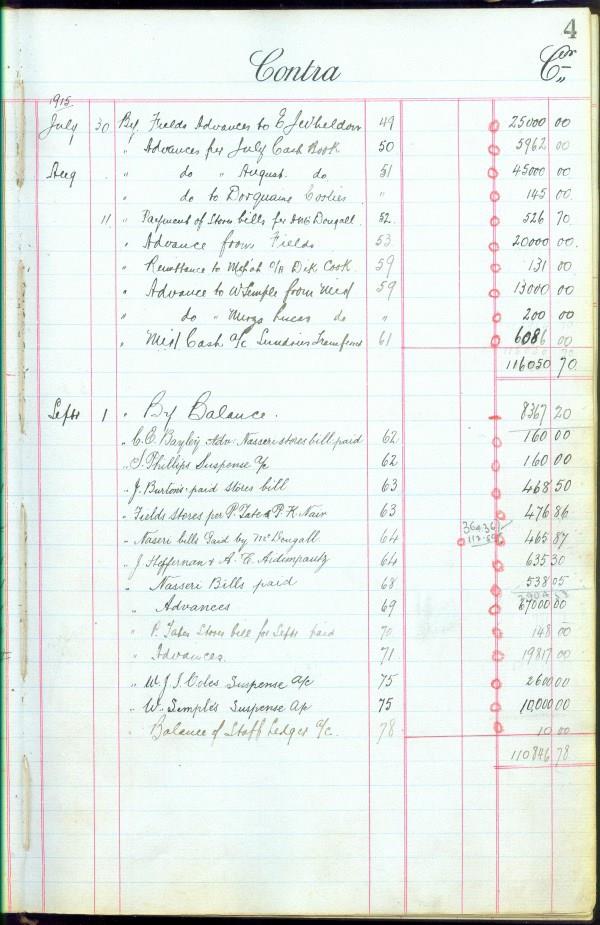 4
Contra Cr
1915
July 30 By Fields Advances to E J Wheldon 49 25000 00
" Advances per July Cash Book 50 5962 00
Aug " do " August do 51 45000 00
" do to Dorquaine Coolies " 145 00
11 " Payment of Stores bills per McDougall 52 526 70
" Advance from Fields 53 20000 00
" Remittance to a/c Dik Cook 59 131 00
" Advance to W Semple from Med 59 13000 00
" do " Mirza Lucas do " 200 00
" Med Cash a/c Sundries Transferred 61 6086 00
116050 70
Septr 1 " By Balance. 8367 20
" C. E. Bayley Adv. Nasseri stores bill paid 62 160 00
" S. Phillips Suspense a/c 62 160 00
" J. Burtons paid stores bill 63 468 50
" Fields stores per P. Tate & P. K. Nair 63 476 86
" Naseri bills Paid by McDougall 64 465 87
" J Heffernan & A. C. 64 635 30
" Nasseri Bills paid 68 538 05
" Advances 69 67000 00
" P. Tates Stores bill for Septr paid 70 148 00
" Advances. 71 19817 00
" W J S. Coles Suspense a/c 75 2600 00
" W. Semple's Suspense a/c 75 10,000 00
" Balance of Staff Ledger a/c. 78 10 00
110846 78